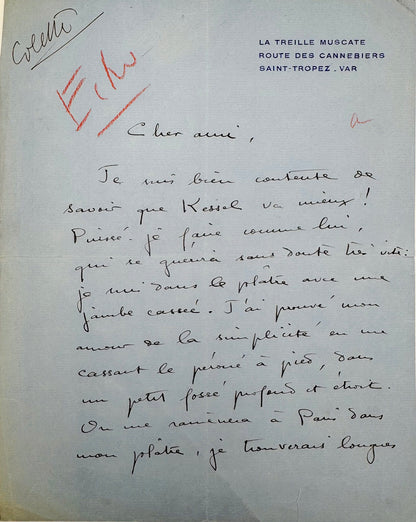 Colette
Echo
LA TREILLE MUSCATE
ROUTE DES CANNEBIERS
SAINT-TROPEZ . VAR
Cher ami,
Je suis bien contente de
savoir que Kessel va mieux !
Puissé-je faire comme lui,
qui se guérira sans doute très vite :
je suis dans le plâtre avec une
jambe cassée. J'ai prouvé mon
amour de la simplicité en me
cassant le péroné à pied, dans
un petit fossé profond et étroit.
On me ramènera à Paris dans
mon plâtre, je trouverais longues